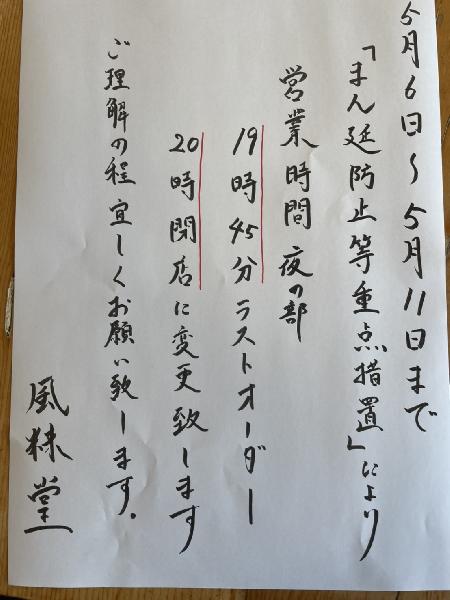 5月6日〜5月11日まで
「まん延防止等重点措置」により
営業時間 夜の部
19時45分ラストオーダー
20時閉店に変更致します
ご理解の程 宜しくお願い致します。
風煉堂